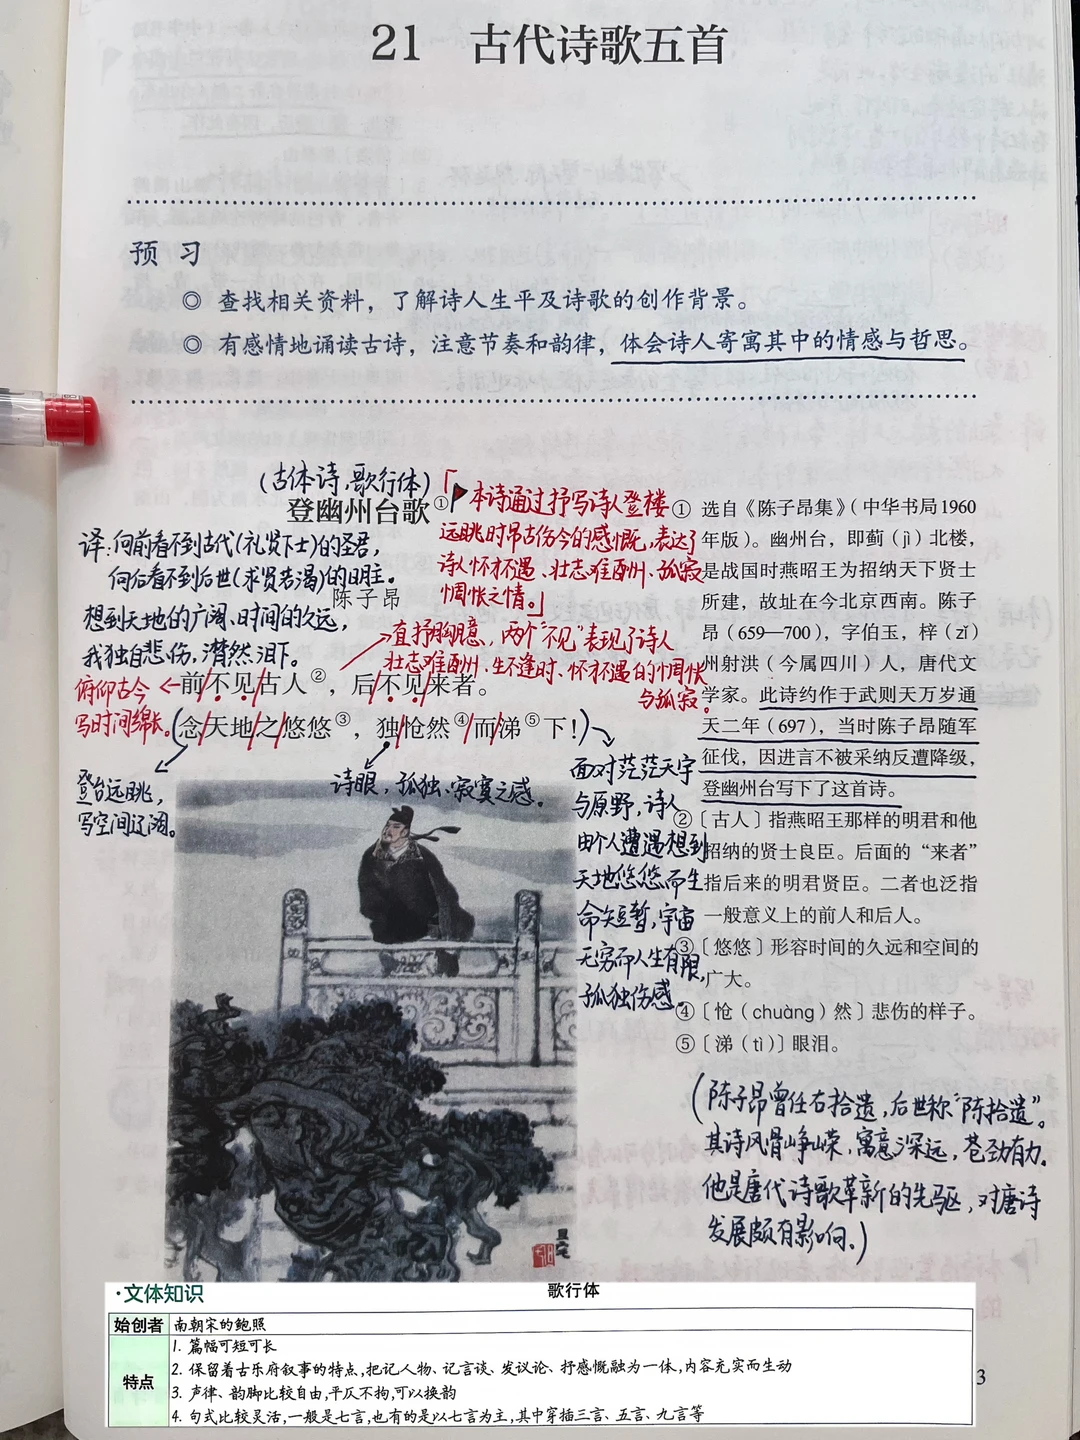 21 古代诗歌五首
预 习
◎ 查找相关资料，了解诗人生平及诗歌的创作背景。
◎ 有感情地诵读古诗，注意节奏和韵律，体会诗人寄寓其中的情感与哲思。
(古体诗,歌行体)
登幽州台歌①
陈子昂
「本诗通过抒写诗人登楼
远眺时吊古伤今的感慨,表达了
诗人怀才不遇、壮志难酬、孤寂
惆怅之情。」
译:向前看不到古代(礼贤下士)的圣君,
向后看不到后世(求贤若渴)的明主。
想到天地的广阔、时间的久远,
我独自悲伤,潸然泪下。
直抒胸臆,两个“不见”表现了诗人
壮志难酬、生不逢时、怀才不遇的惆怅
与孤寂。
前/不见/古人②，后/不见/来者。
(念/天地/之/悠悠③，独/怆然④/而/涕⑤下!)
俯仰古今
写时间绵长。
登台远眺,
写空间辽阔。
诗眼,孤独、寂寞之感。
面对茫茫天宇
与原野,诗人
由个人遭遇想到
天地悠悠而生
命短暂,宇宙
无穷而人生有限,
孤独伤感。
① 选自《陈子昂集》（中华书局1960
年版）。幽州台，即蓟（jì）北楼，
是战国时燕昭王为招纳天下贤士
所建，故址在今北京西南。陈子
昂（659—700），字伯玉，梓（zǐ）
州射洪（今属四川）人，唐代文
学家。此诗约作于武则天万岁通
天二年（697），当时陈子昂随军
征伐，因进言不被采纳反遭降级，
登幽州台写下了这首诗。
②〔古人〕指燕昭王那样的明君和他
招纳的贤士良臣。后面的“来者”
指后来的明君贤臣。二者也泛指
一般意义上的前人和后人。
③〔悠悠〕形容时间的久远和空间的
广大。
④〔怆（chuàng）然〕悲伤的样子。
⑤〔涕（tì）〕眼泪。
(陈子昂曾任右拾遗,后世称“陈拾遗”。
其诗风骨峥嵘,寓意深远,苍劲有力。
他是唐代诗歌革新的先驱,对唐诗
发展颇有影响。)
·文体知识
歌行体
始创者 南朝宋的鲍照
特点
1. 篇幅可短可长
2. 保留着古乐府叙事的特点,把记人物、记言谈、发议论、抒感慨融为一体,内容充实而生动
3. 声律、韵脚比较自由,平仄不拘,可以换韵
4. 句式比较灵活,一般是七言,也有的是以七言为主,其中穿插三言、五言、九言等
3